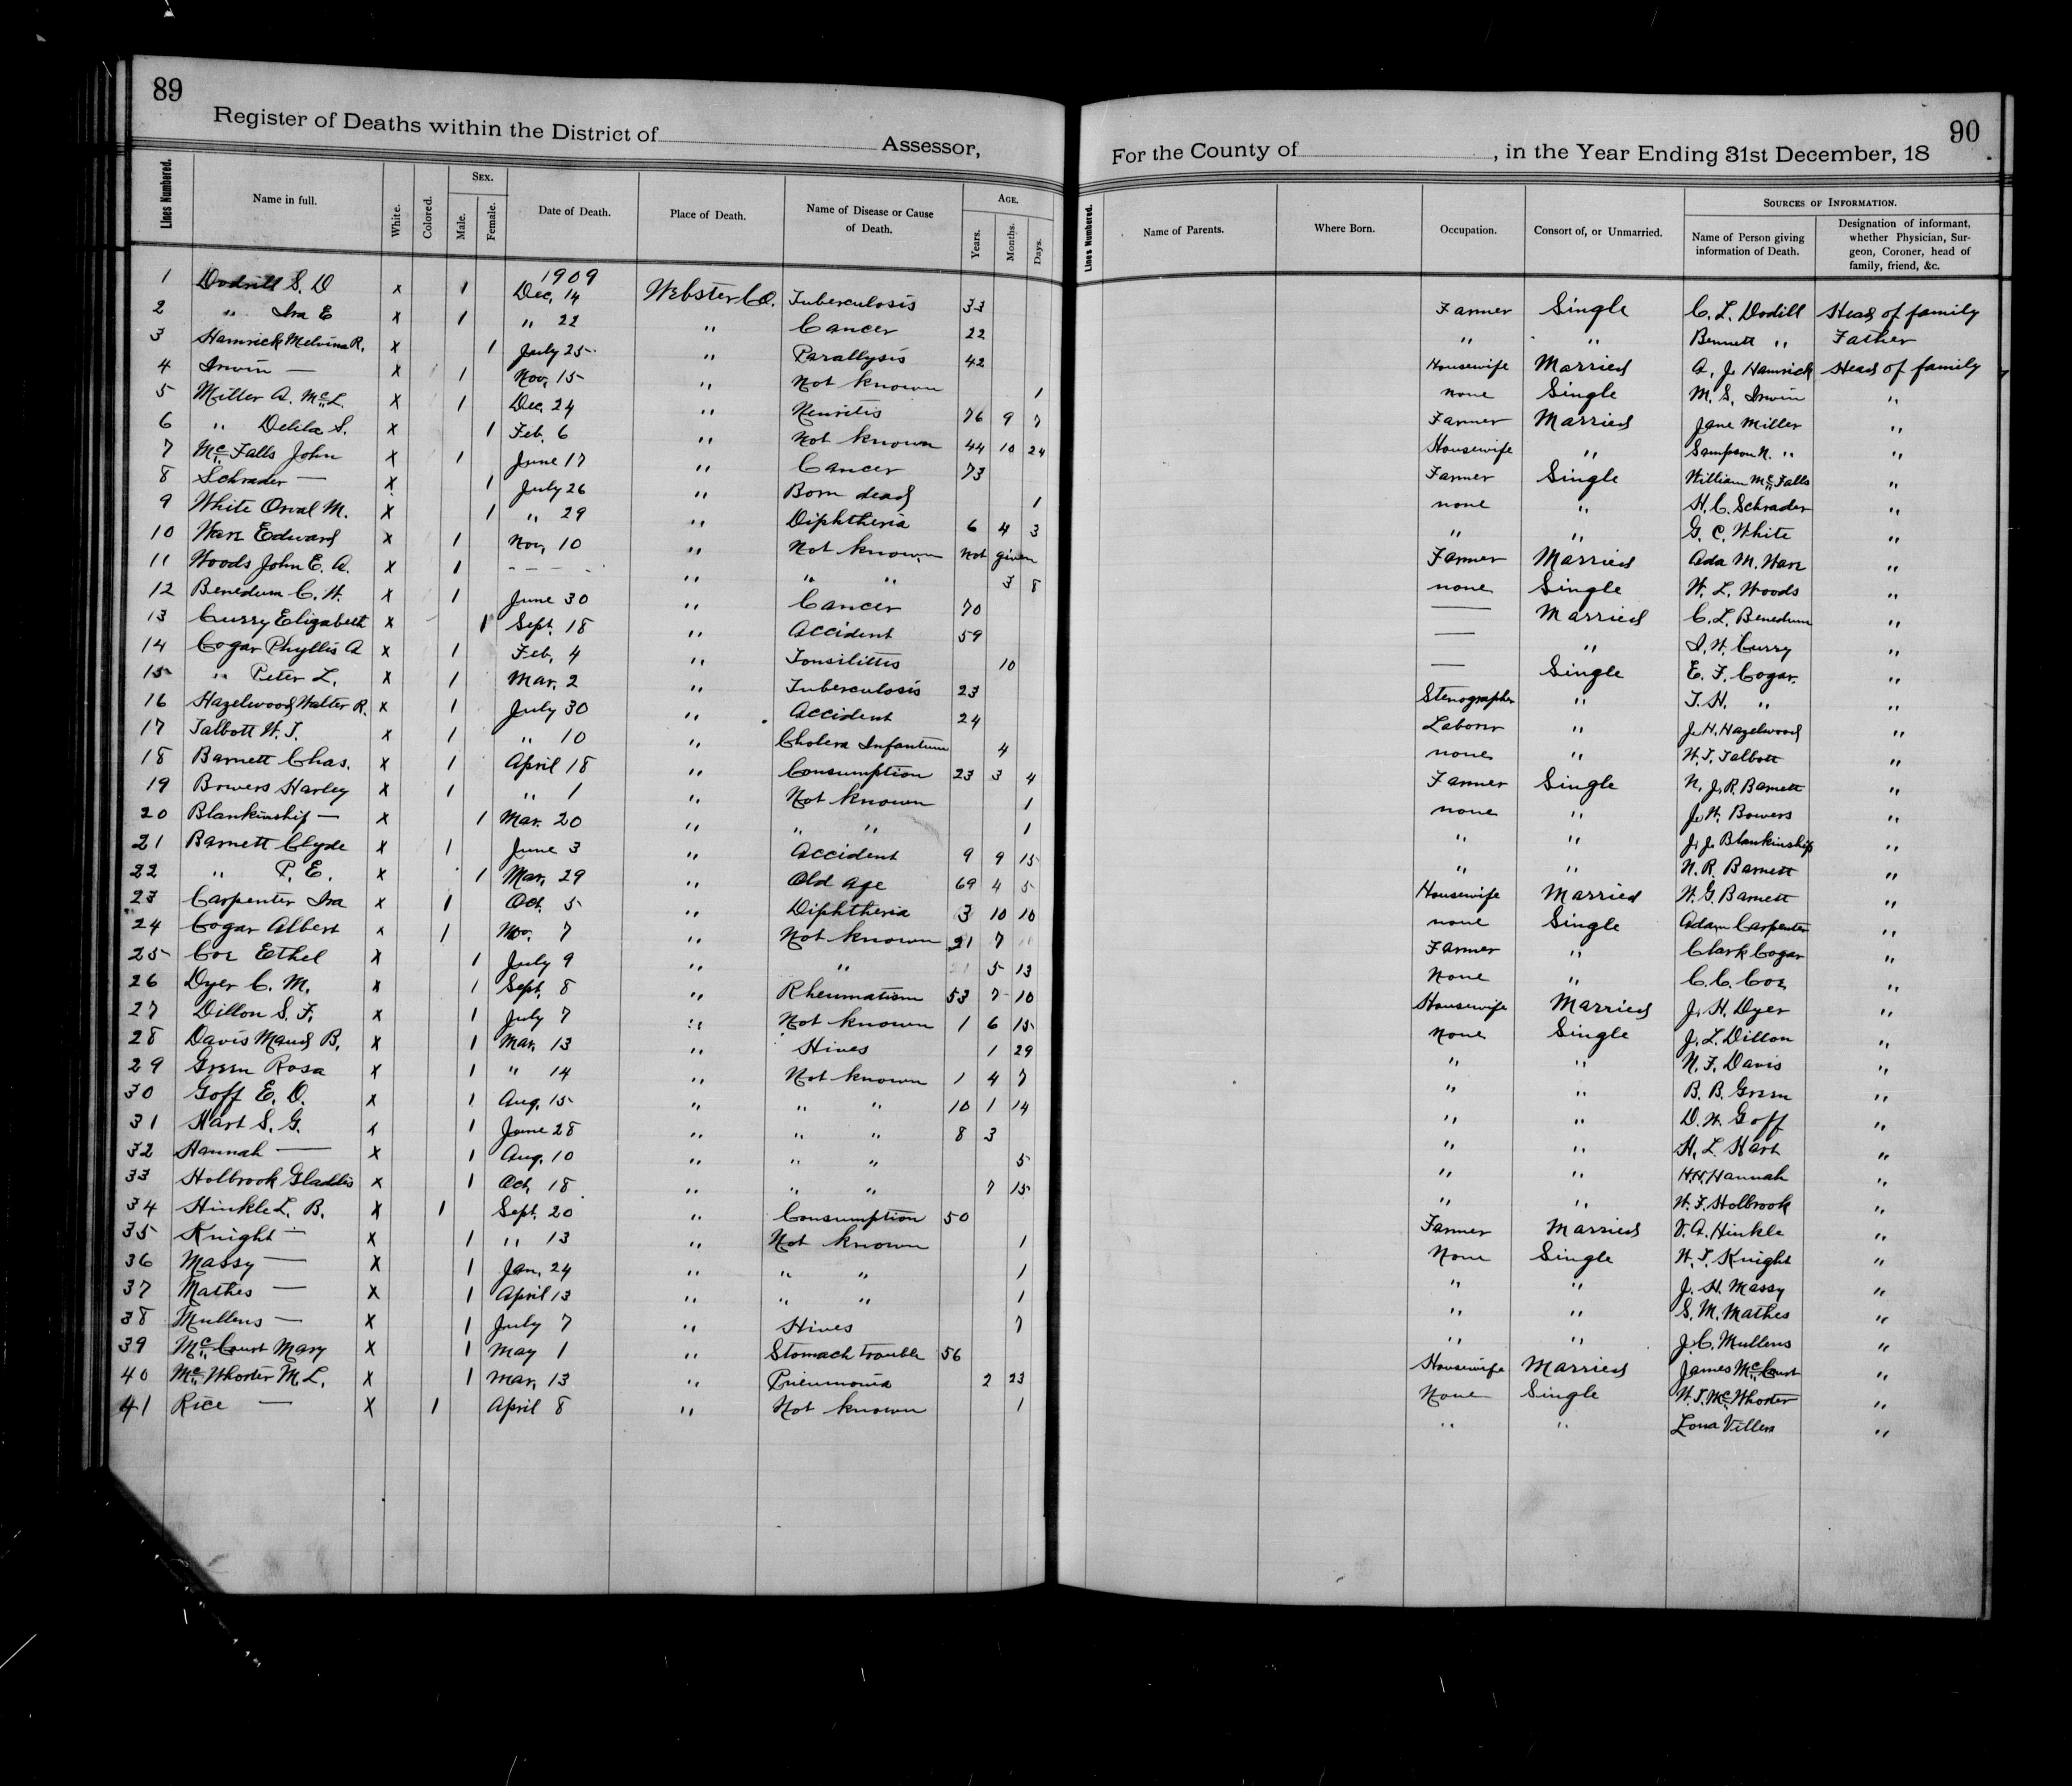 89
Register of Deaths within the District of Assessor,
Lines Numbered. Name in full. White. Colored. Sex. Male. Female. Date of Death. Place of Death. Name of Disease or Cause of Death. Age. Years. Months. Days.
1 Dodrill S. D x 1 1909 Dec. 14 Webster Co. Tuberculosis 33
2 " Ira E x 1 " 22 " Cancer 22
3 Hamrick Melvina R. x 1 July 25 " Parallysis 42
4 Irwin — x 1 Nov. 15 " Not known 1
5 Miller A. McL. x 1 Dec. 24 " Neuritis 76 9 7
6 " Delila S. x 1 Feb. 6 " Not known 44 10 24
7 McFalls John x 1 June 17 " Cancer 73
8 Schrader — x 1 July 26 " Born dead 1
9 White Orval M. x 1 " 29 " Diphtheria 6 4 3
10 Ware Edward x 1 Nov. 10 " Not known Not given
11 Woods John E. A. x 1 - - - - " " " 3 8
12 Benedum C. H. x 1 June 30 " Cancer 70
13 Curry Elizabeth x 1 Sept. 18 " Accident 59
14 Cogar Phyllis A x 1 Feb. 4 " Tonsilittis 10
15 " Peter L. x 1 Mar. 2 " Tuberculosis 23
16 Hazelwood Walter R. x 1 July 30 " Accident 24
17 Talbott W. T. x 1 " 10 " Cholera Infantum 4
18 Barnett Chas. x 1 April 18 " Consumption 23 3 4
19 Bowers Harley x 1 " 1 " Not known 1
20 Blankinship — x 1 Mar. 20 " " " 1
21 Barnett Clyde x 1 June 3 " Accident 9 9 15
22 " P. E. x 1 Mar. 29 " Old age 69 4 5
23 Carpenter Ira x 1 Oct. 5 " Diphtheria 3 10 10
24 Cogar Albert x 1 Nov. 7 " Not known 21 7
25 Coe Ethel x 1 July 9 " " 5 13
26 Dyer C. M. x 1 Sept. 8 " Rheumatism 53 7 10
27 Dillon S. F. x 1 July 7 " Not known 1 6 15
28 Davis Maud B. x 1 Mar. 13 " Hives 1 29
29 Green Rosa x 1 " 14 " Not known 1 4 7
30 Goff E. O. x 1 Aug. 15 " " " 10 1 14
31 Hart S. G. x 1 June 28 " " " 8 3
32 Hannah — x 1 Aug. 10 " " " 5
33 Holbrook Gladdis x 1 Oct. 18 " " " 7 15
34 Hinkle L. B. x 1 Sept. 20 " Consumption 50
35 Knight — x 1 " 13 " Not known 1
36 Massy — x 1 Jan. 24 " " " 1
37 Mathes — x 1 April 13 " " " 1
38 Mullens — x 1 July 7 " Hives 7
39 McCourt Mary x 1 May 1 " Stomach trouble 56
40 McWhorter M. L. x 1 Mar. 13 " Pneumonia 2 23
41 Rice — x 1 April 8 " Not known 1
90
For the County of , in the Year Ending 31st December, 18
Lines Numbered. Name of Parents. Where Born. Occupation. Consort of, or Unmarried. Sources of Information. Name of Person giving information of Death. Designation of informant, whether Physician, Surgeon, Coroner, head of family, friend, &c.
Farmer Single C. L. Dodill Head of family
" " Bennett " Father
Housewife Married A. J. Hamrick Head of family
none Single M. S. Irwin "
Farmer Married Jane Miller "
Housewife " Sampson N. " "
Farmer Single William McFalls "
none " H. C. Schrader "
" " G. C. White "
Farmer Married Ada M. Ware "
none Single W. L. Woods "
— Married C. L. Benedum "
— " I. W. Curry "
— Single E. F. Cogar "
Stenographer " T. H. " "
Laborer " J. H. Hazelwood "
none " W. T. Talbott "
Farmer Single N. J. R. Barnett "
none " J. W. Bowers "
" " J. J. Blankinship "
" " N. R. Barnett "
Housewife Married W. G. Barnett "
none Single Adam Carpenter "
Farmer " Clark Cogar "
None " C. C. Coe "
Housewife Married J. H. Dyer "
None Single J. L. Dillon "
" " N. F. Davis "
" " B. B. Green "
" " D. W. Goff "
" " H. L. Hart "
" " H.H. Hannah "
" " W. F. Holbrook "
Farmer Married V. A. Hinkle "
None Single W. T. Knight "
" " J. H. Massy "
" " S. M. Mathes "
" " J. C. Mullens "
Housewife Married James McCourt "
None Single W. T. McWhorter "
" " Lona Villers "